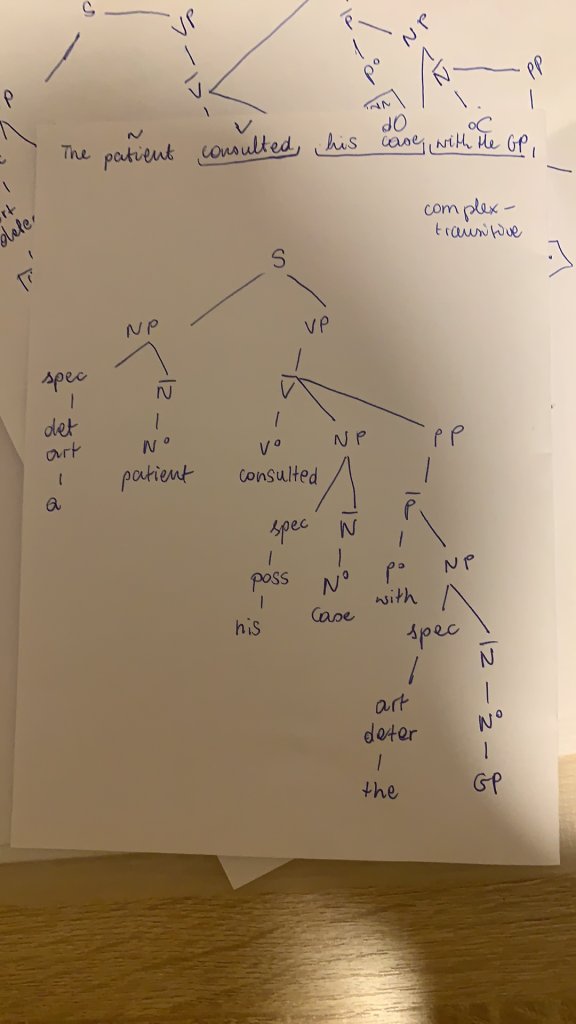 S VP
P̄ NP
P° N̄ PP
V̄
P
art
deter
N V dO oC
The patient consulted his case, with the GP,
complex-
transitive
S
NP VP
spec N̄ V̄
det N° V° NP PP
art patient consulted
a spec N̄ P̄
poss N° P° NP
his case with
spec N̄
art N°
deter
the GP